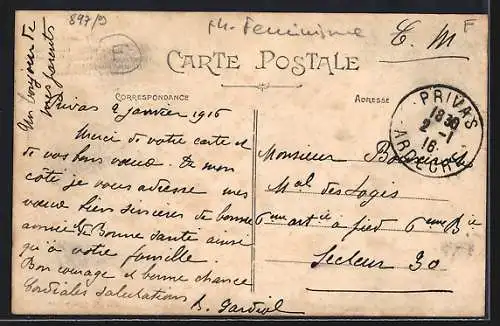 897/9
th. Feminisme
F
C. M
CARTE POSTALE
CORRESPONDANCE
ADRESSE
Un bonjour de
mes parents
PRIVAS
18 30
2 - 1
16
ARDECHE
Privas 2 janvier 1916
Merci de votre carte et
de vos bons vœux. De mon
côté je vous adresse mes
vœux biens sincères de bonne
année de Bonne Santé ainsi
qu'à votre famille.
Bon courage et bonne chance
Cordiales salutations
Monsieur
Mal des Logis
6eme artie à pied 6eme Bie
Secteur 30